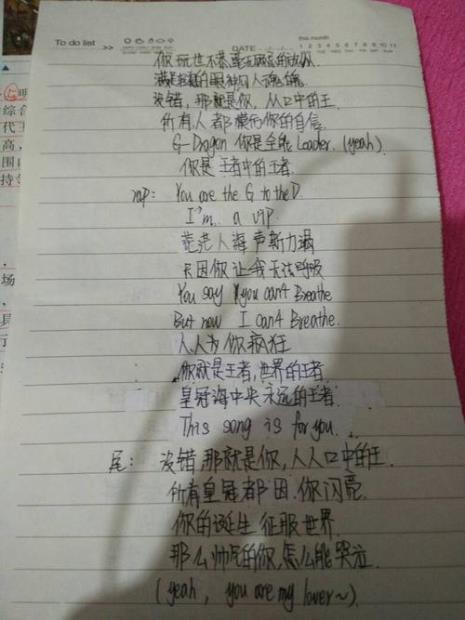 To do list >>
DATE
this month
1 2 3 4 5 6 7 8 9 10 11
你玩也不
满是的眼神闪人魂魄
没错,那就是你,人口中的王.
所有人都模仿你的自信.
G-Dragon 你是全能 Leader. (yeah)
你是王者中的王者.
rap: You are the G to the D.
I'm a VIP
茫茫人海声斯力竭
只因你让我无法呼吸
You say you can't Breathe
But now I can't Breathe.
人人为你疯狂
你就是王者,世界的王者.
皇冠海中央永远的王者.
This song is for you.
尾: 没错,那就是你,人人口中的王.
所有皇冠都因你闪亮.
你的诞生 征服世界.
那么帅气的你,怎么能哭泣.
(yeah, you are my lover~)
明
综合
代
高,
围
持
场